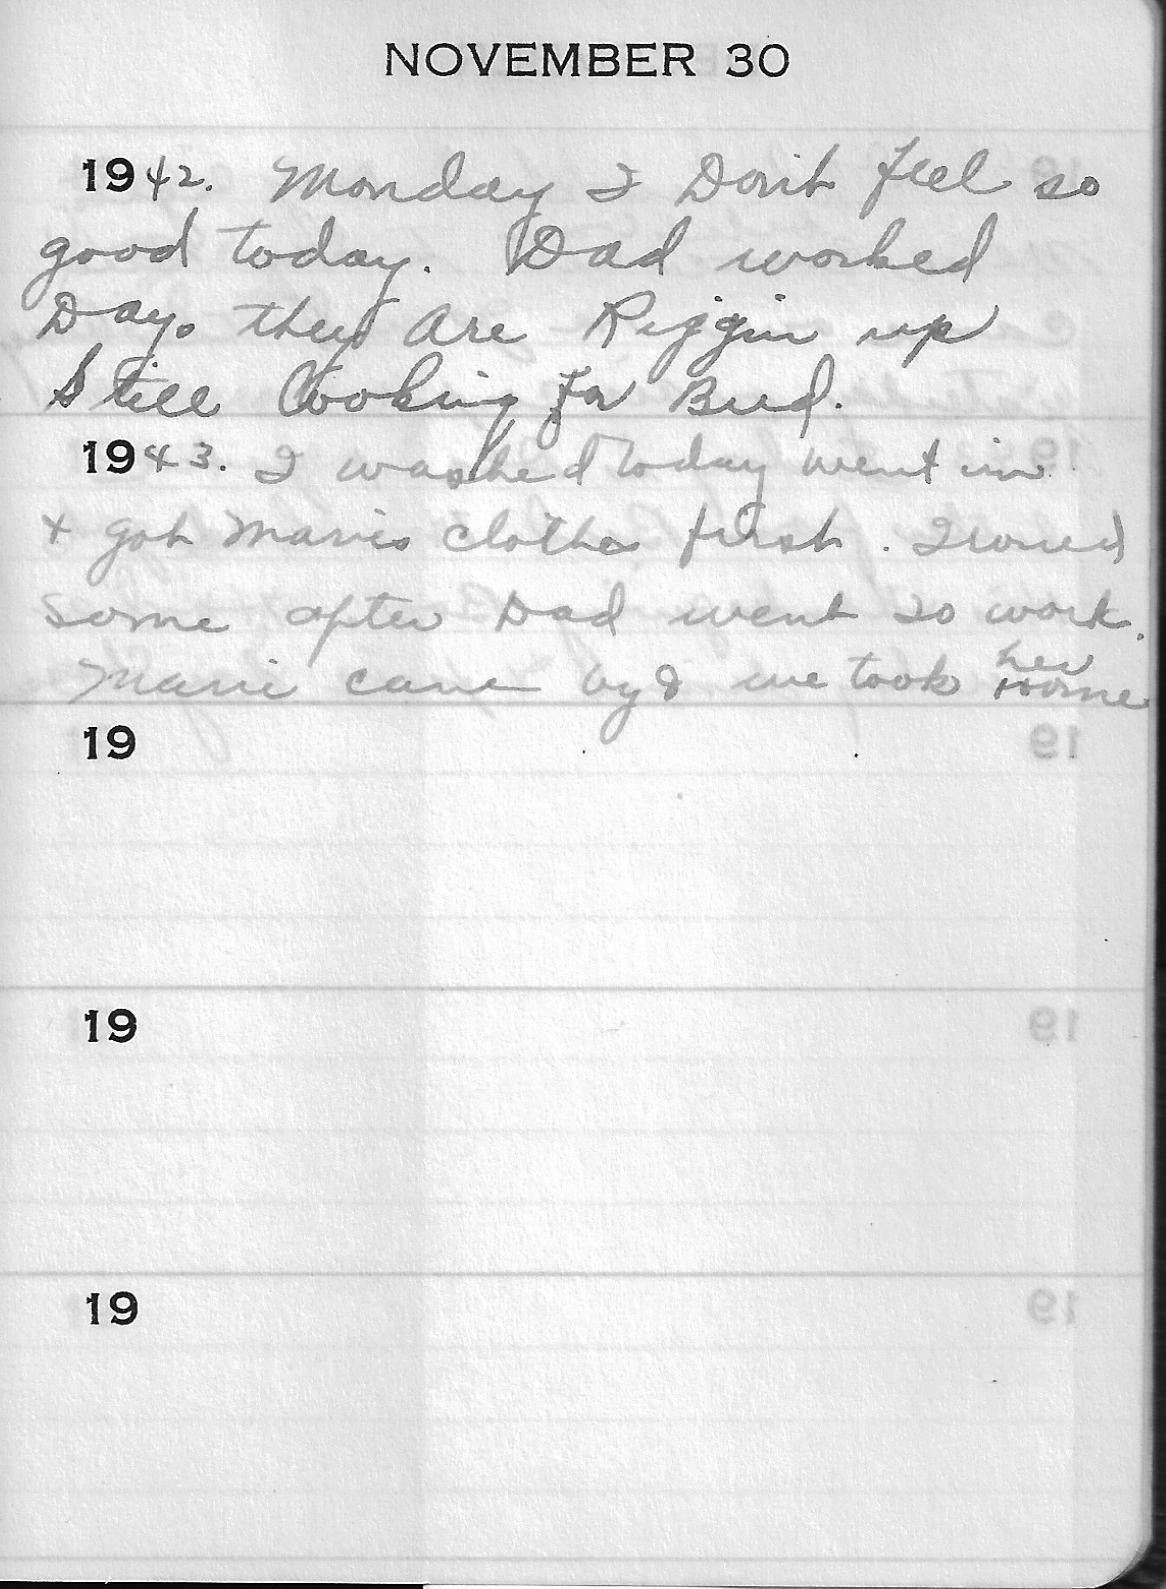 NOVEMBER 30
1942. Monday I Don't feel so
good today. Dad worked
Day. they are Riggin up
Still Cooking for Bud.
1943. I washed today went in
+ got Maries clothes first. Ironed
some after Dad went to work.
Marie came by & we took her home
19
19
19